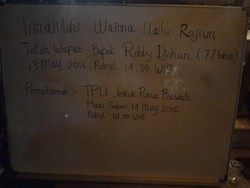 Innalillahi Wainna Ilaihi Rajiun
Telah Wafat Bapak Robby Djohan (77 tahun)
13 May 2016, Pukul 14.59 WIB
Pemakaman : TPU Jeruk Purut Bawah
Hari Sabtu 14 May 2016
Pukul 10.00 WIB